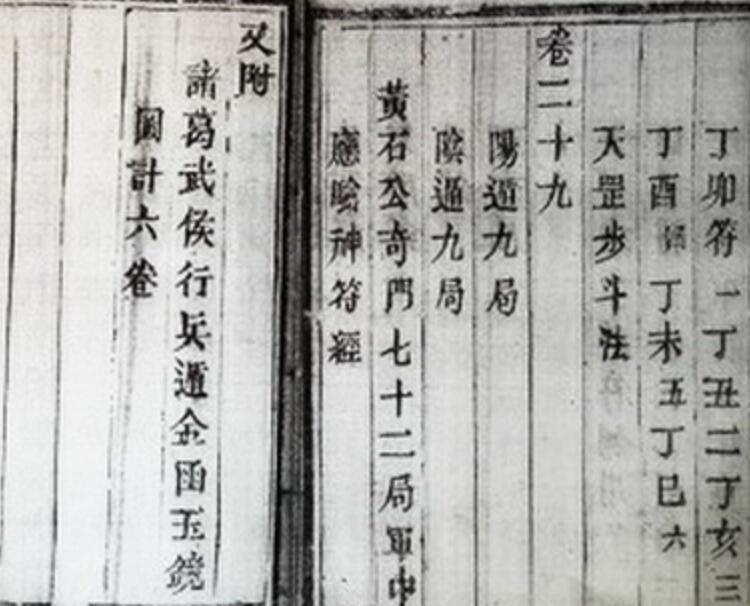 丁卯符一丁丑二丁亥三
丁酉 丁未五丁巳六
天罡步斗法
卷二十九
陽遁九局
陰遁九局
黄石公竒門七十二局軍中
應騐神符經
又附
諸葛武侯行兵遁金函玉鏡
圖計六卷